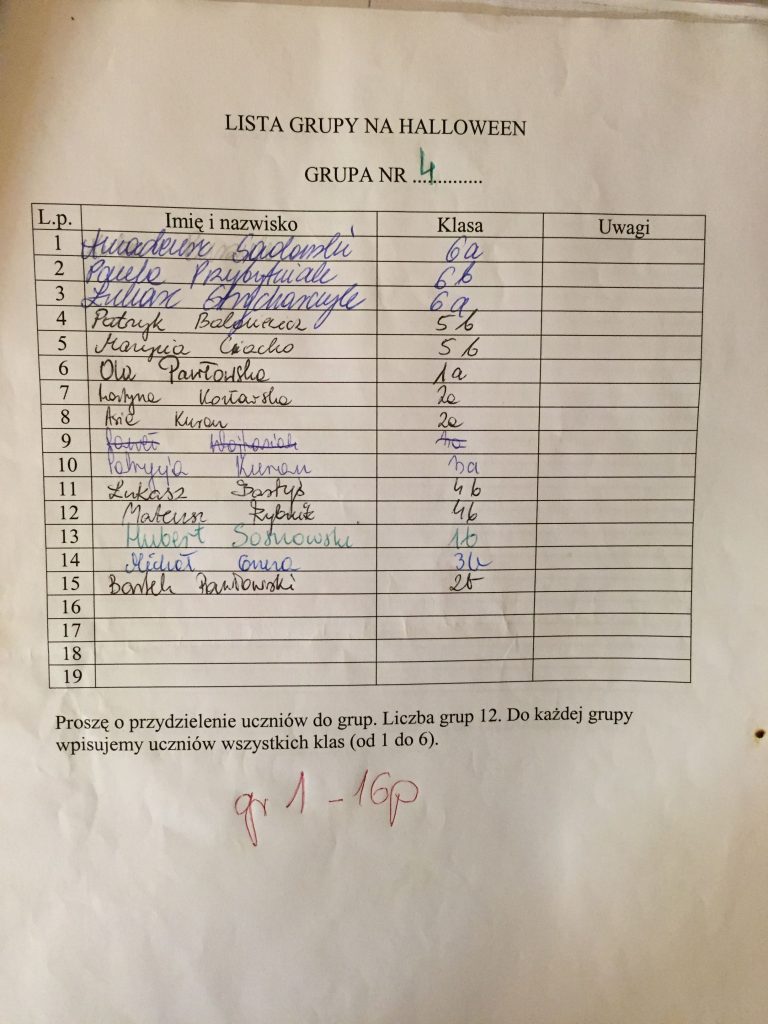 LISTA GRUPY NA HALLOWEEN
GRUPA NR 4..............
L.p. Imię i nazwisko Klasa Uwagi
1 Amadeusz Sadowski 6a
2 6b
3 Łukasz 6a
4 Patryk 5b
5 Marysia Ciacho 5b
6 Ola Pawłowska 1a
7 2a
8 Asia Kuran 2a
9 Paweł
10 Patrycja Kurian 3a
11 Łukasz Bartyś 4b
12 Mateusz Rybnik 4b
13 Hubert Sosnowski 1b
14 Michał 3b
15 Bartek Pawłowski 2b
16
17
18
19
Proszę o przydzielenie uczniów do grup. Liczba grup 12. Do każdej grupy
wpisujemy uczniów wszystkich klas (od 1 do 6).
gr 1 - 16p